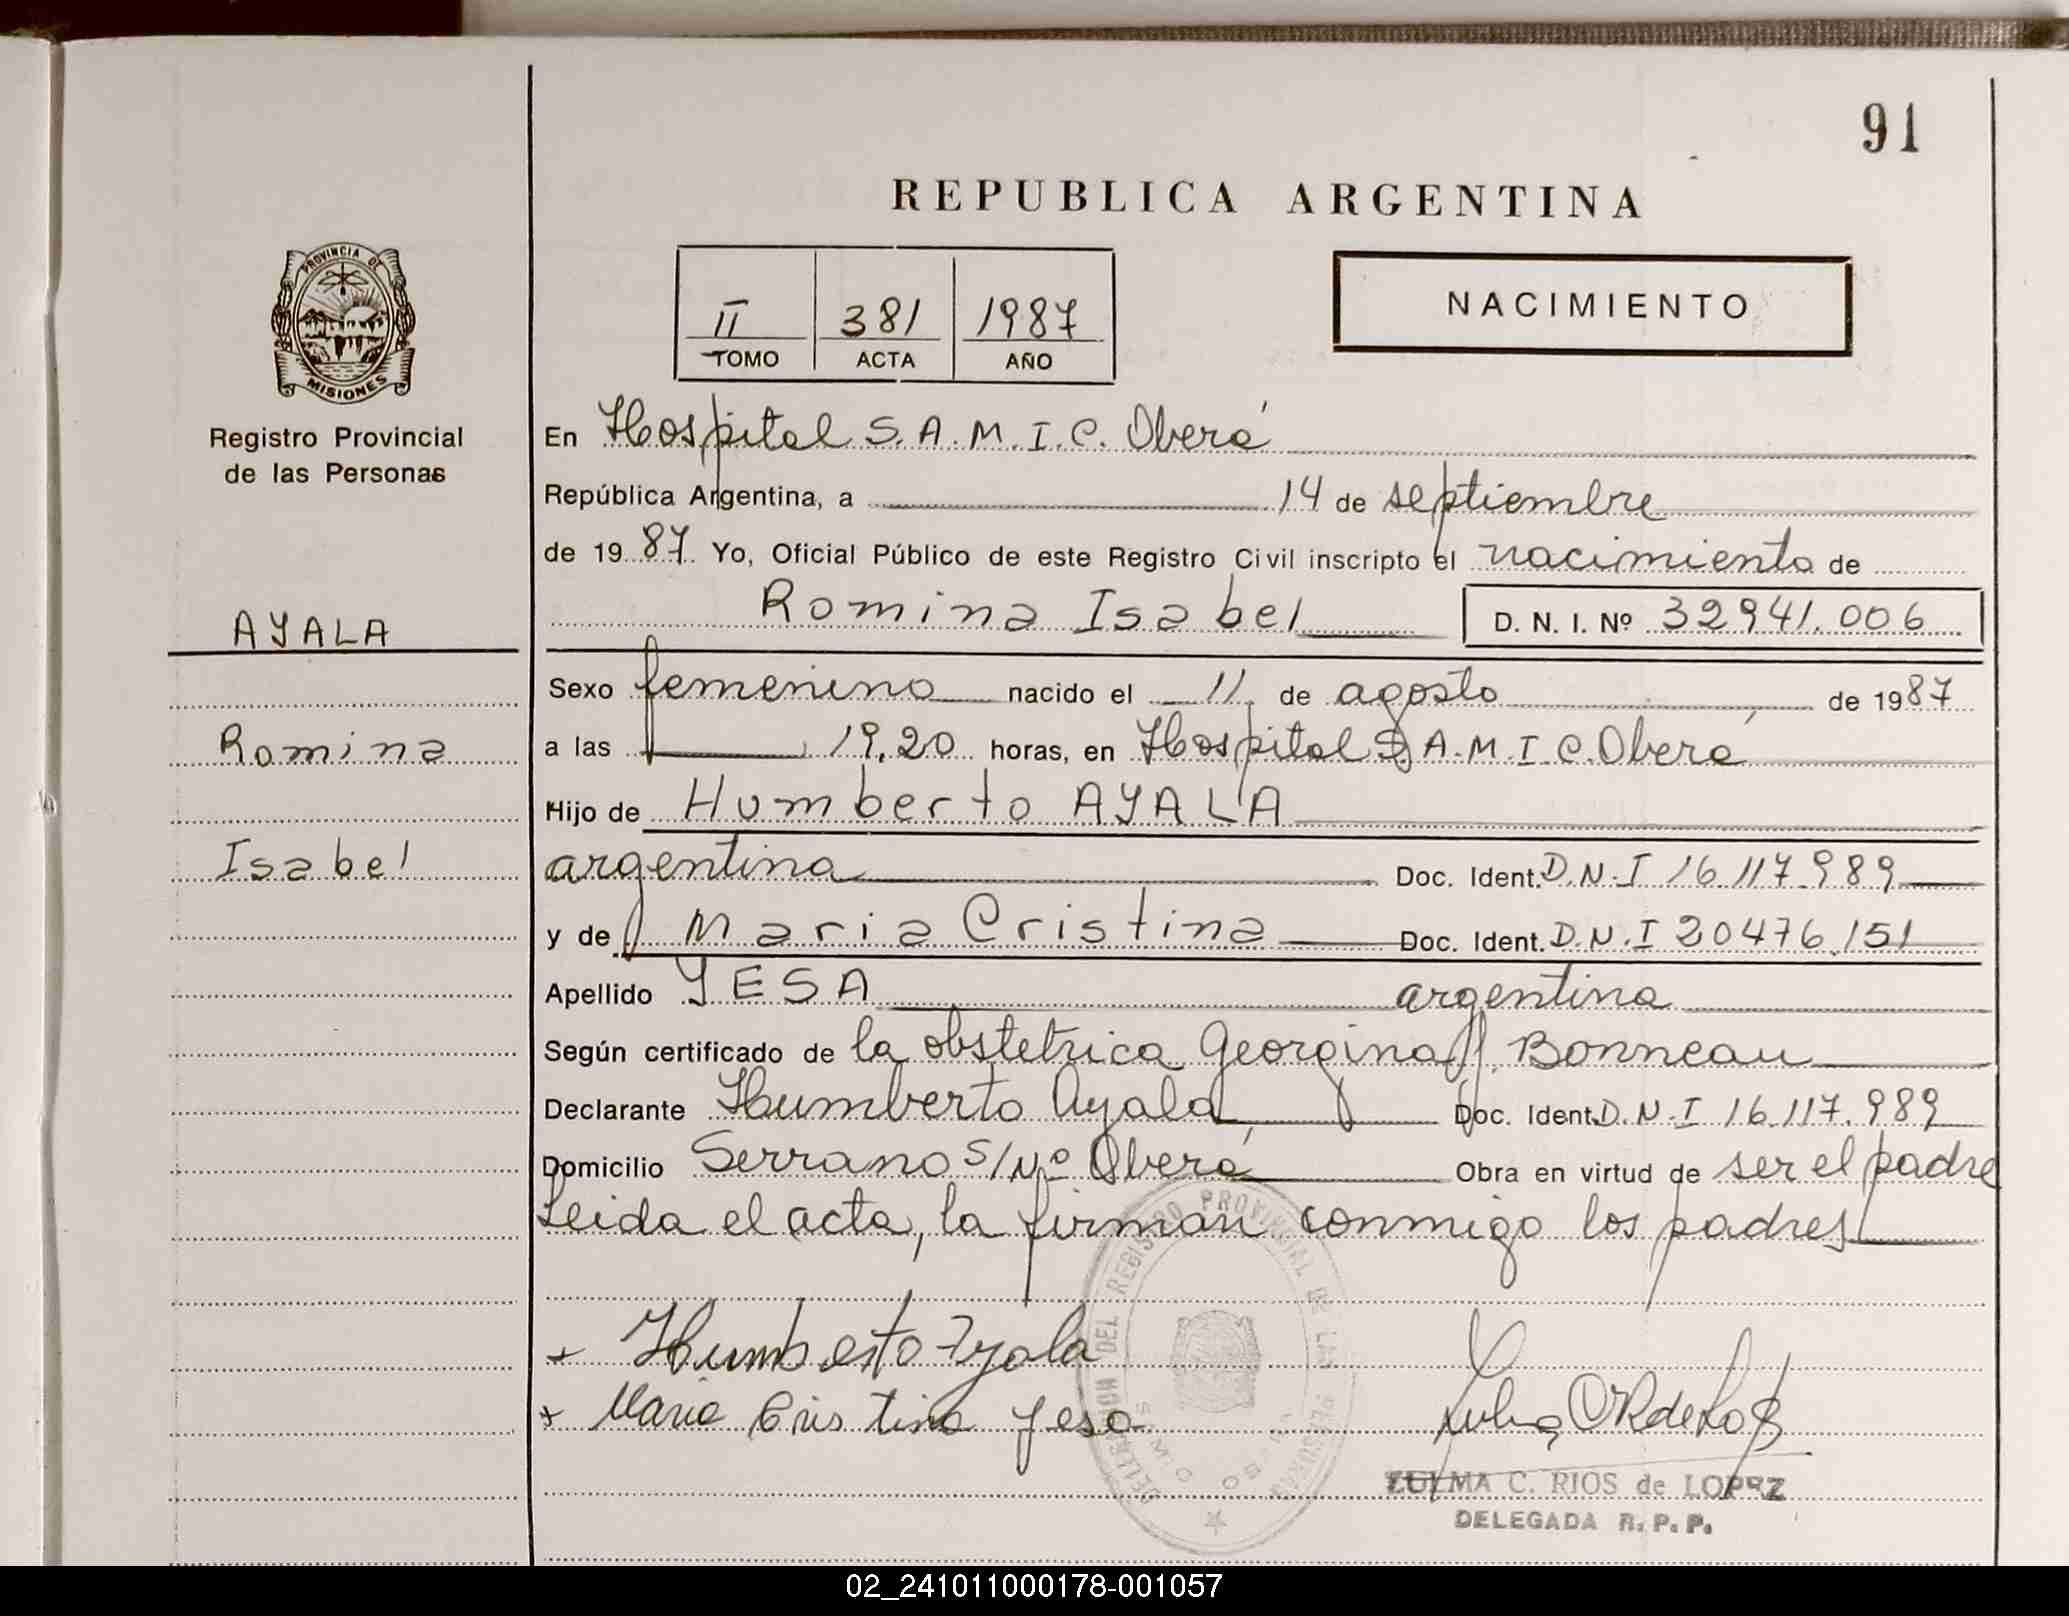 91
REPUBLICA ARGENTINA
PROVINCIA DE
MISIONES
Registro Provincial
de las Personas
II 381 1987
TOMO ACTA AÑO
NACIMIENTO
En Hospital S.A.M.I.C. Oberá
República Argentina, a 14 de septiembre
de 19 87 Yo, Oficial Público de este Registro Civil inscripto el nacimiento de
AYALA
Romina Isabel D. N. I. Nº 32941.006
Sexo femenino nacido el 11 de agosto de 1987
Romina
a las 19,20 horas, en Hospital S.A.M.I.C. Oberá
Hijo de Humberto AYALA
Isabel
argentina Doc. Ident. D.N.I 16.117.989
y de Maria Cristina Doc. Ident. D.N.I 20476.151
Apellido YESA argentina
Según certificado de la obstetrica Georgina Bonneau
Declarante Humberto Ayala Doc. Ident. D.N.I 16.117.989
Domicilio Serrano S/Nº Oberá Obra en virtud de ser el padre
Leida el acta, la firman conmigo los padres
Humberto Ayala
Maria Cristina Yesa
DELEGACION DEL REGISTRO PROVINCIAL DE LAS PERSONAS
ZULMA C. RIOS de LOPEZ
DELEGADA R. P. P.
02_241011000178-001057